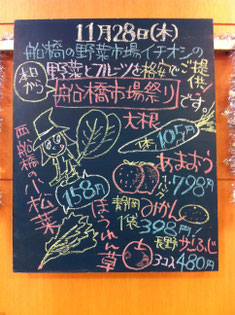 11月28日(木)
船橋の野菜市場イチオシの
野菜とフルーツを格安でご提供
本日から
です。
船橋市場祭り
大根
1本 105円
あまおう
798円
西船橋の小松菜
158円
ほうれん草
静岡みかん
1袋 398円!
長野サンふじ
3コ入 480円